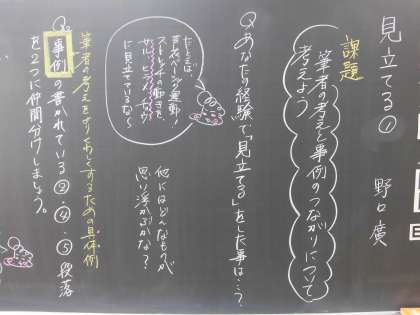 見立てる①　野口廣
課題
筆者の考えと事例のつながりについて
考えよう
Qあなたの経験で「見立てる」をした事は…？
たとえば、
ストレッチの動きを、
に見立てているな〜
他にはどんなものが
思い浮かぶかな？
筆者の考えをよりくわしくするための具体例
Q₂事例の書かれている②・④・⑤段落
を2つに仲間分けしましょう。